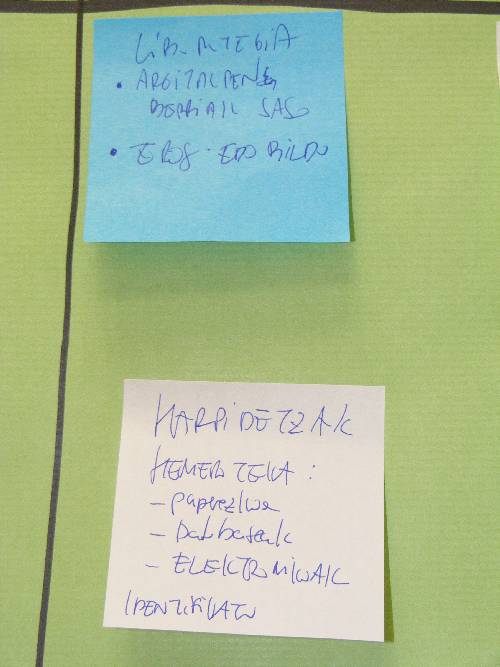 LIBURUTEGIA
• ARGITALPEN
BERRIAK
• EROSI EDO BILDU
HARPIDETZAK
HEMEROTEKA :
- paperezkoa
- Datubaseak
- ELEKTRONIKOAK
IDENTIFIKATU